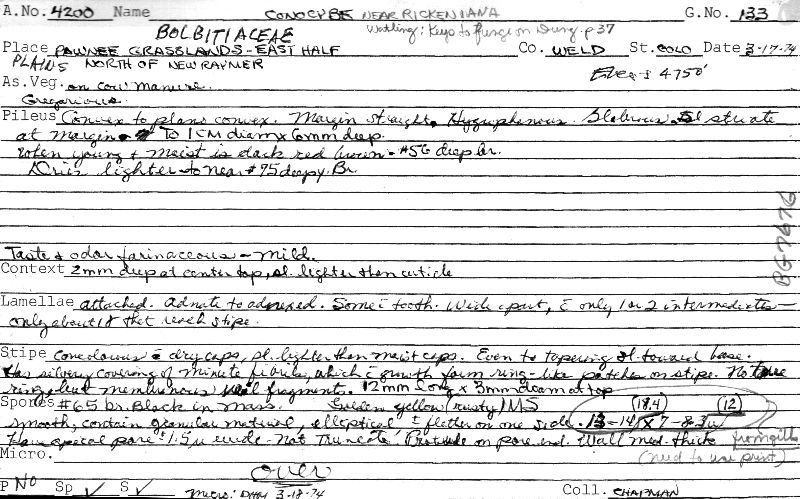 A.No. 4200 Name CONOCYBE NEAR RICKENIANA G.No. 133
BOLBITIACEAE Watling: Keys to fungi on Dung p 37
Place PAWNEE GRASSLANDS - EAST HALF Co. WELD St. COLO Date 3-17-74
PLAINS NORTH OF NEW RAYMER Elev. 4750'
As.Veg. on cow manure.
Gregarious.
Pileus Convex to plano convex. Margin straight. Hygrophanous. Glabrous. Sl striate
at margin. To 1 CM diam x 6 mm deep.
When young & moist is dark red brown - #56 deep br.
Dries lighter to near #75 deep y. Br.
Taste & odor farinaceous - mild.
Context 2mm deep at center top, sl. lighter than cuticle
Lamellae attached. Adnate to adnexed. Some c̄ tooth. Wide apart, c̄ only 1 or 2 intermediates -
only about 18 that reach stipe.
Stipe concolorous c̄ dry caps, sl. lighter than moist caps. Even to tapering sl. toward base.
Has silvery covering of minute fibrils, which c̄ growth form ring-like patches on stipe. No true
ring, but membranous veil fragments. 12mm long x 3mm diam at top
Spores #65 br. Black in mass. Golden yellow rusty/MS (18.4) (12)
smooth, contain granular material, elliptical ± flatter on one side. 13-14 x 7-8.3 u
Have apical pore ± 1.5 u wide - Not Truncate. Protrude on pore end. Wall med. thick from gills
Micro. (need to use print)
over
P NO Sp ✓ S ✓ Micro: DHM 3-18-74 Coll. CHAPMAN
BG7676